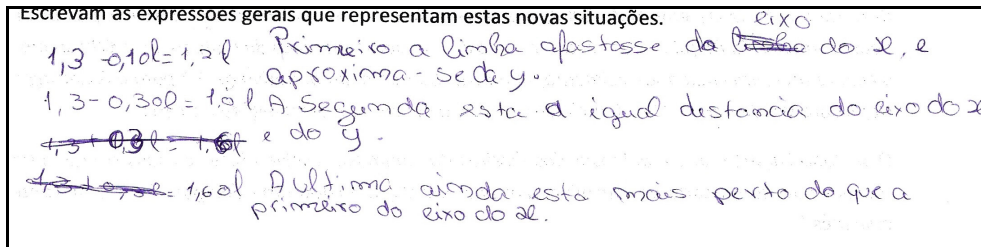 Escrevam as expressões gerais que representam estas novas situações.
eixo
1,3 -0,10l=1,2l Primeiro a linha afastasse da do x, e
aproxima-se da y.
1,3-0,30l=1,0l A Segunda esta a igual distancia do eixo do x
1,3+0,3l=1,6l e do y.
1,60l A ultima ainda esta mais perto do que a
primeiro do eixo do x.